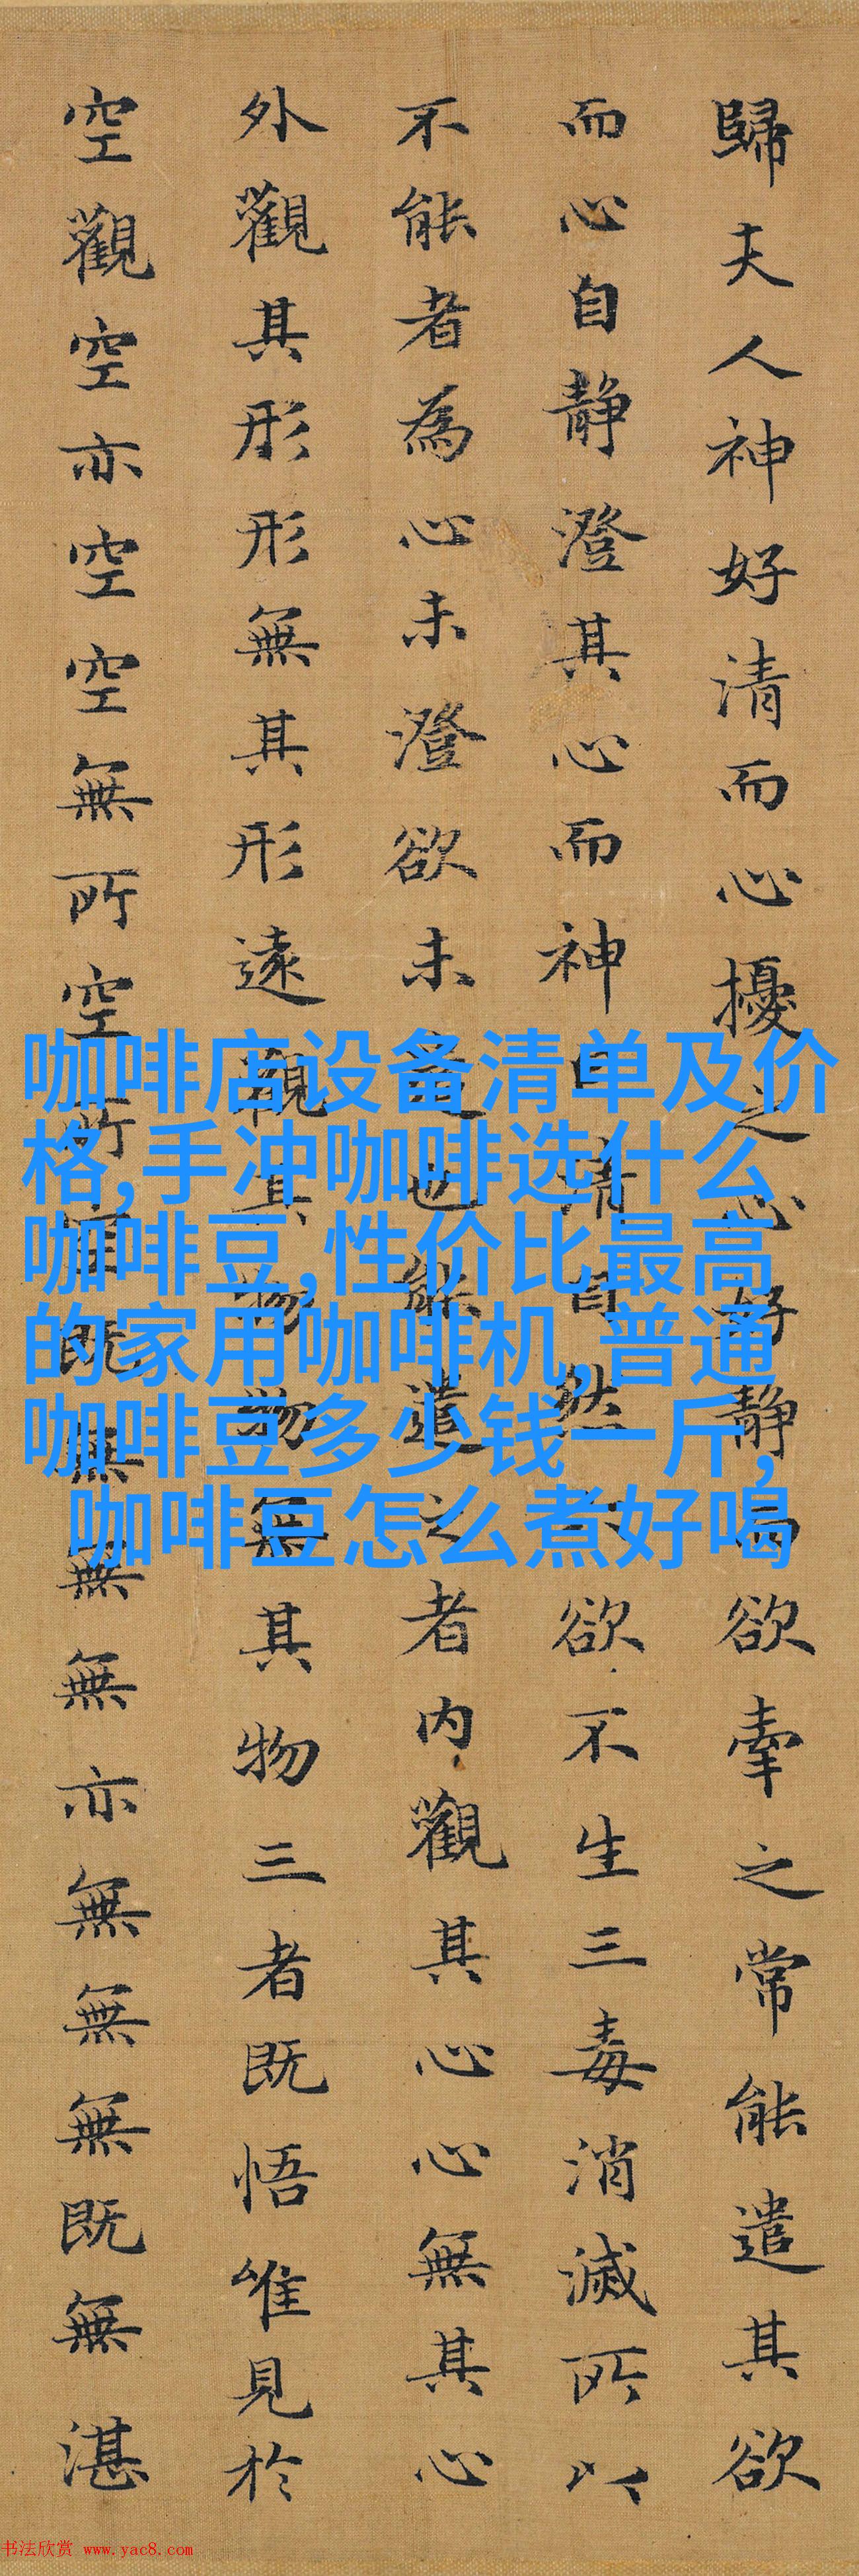 歸夫人神好清而心擾之心好静而欲牽之常能遣其欲
而心自静澄其心而神自清自然六欲不生三毒消滅所以
不能者為心未澄欲未遣也能遣之者内觀其心心無其心
外觀其形形無其形遠觀其物物無其物三者既悟唯見於
空觀空亦空空無所空所空既無無無亦無無無既無湛
咖啡店设备清单及价
格,手冲咖啡选什么
咖啡豆,性价比最高
的家用咖啡机,普通
咖啡豆多少钱一斤,
咖啡豆怎么煮好喝
书法欣赏 www.yac8.com